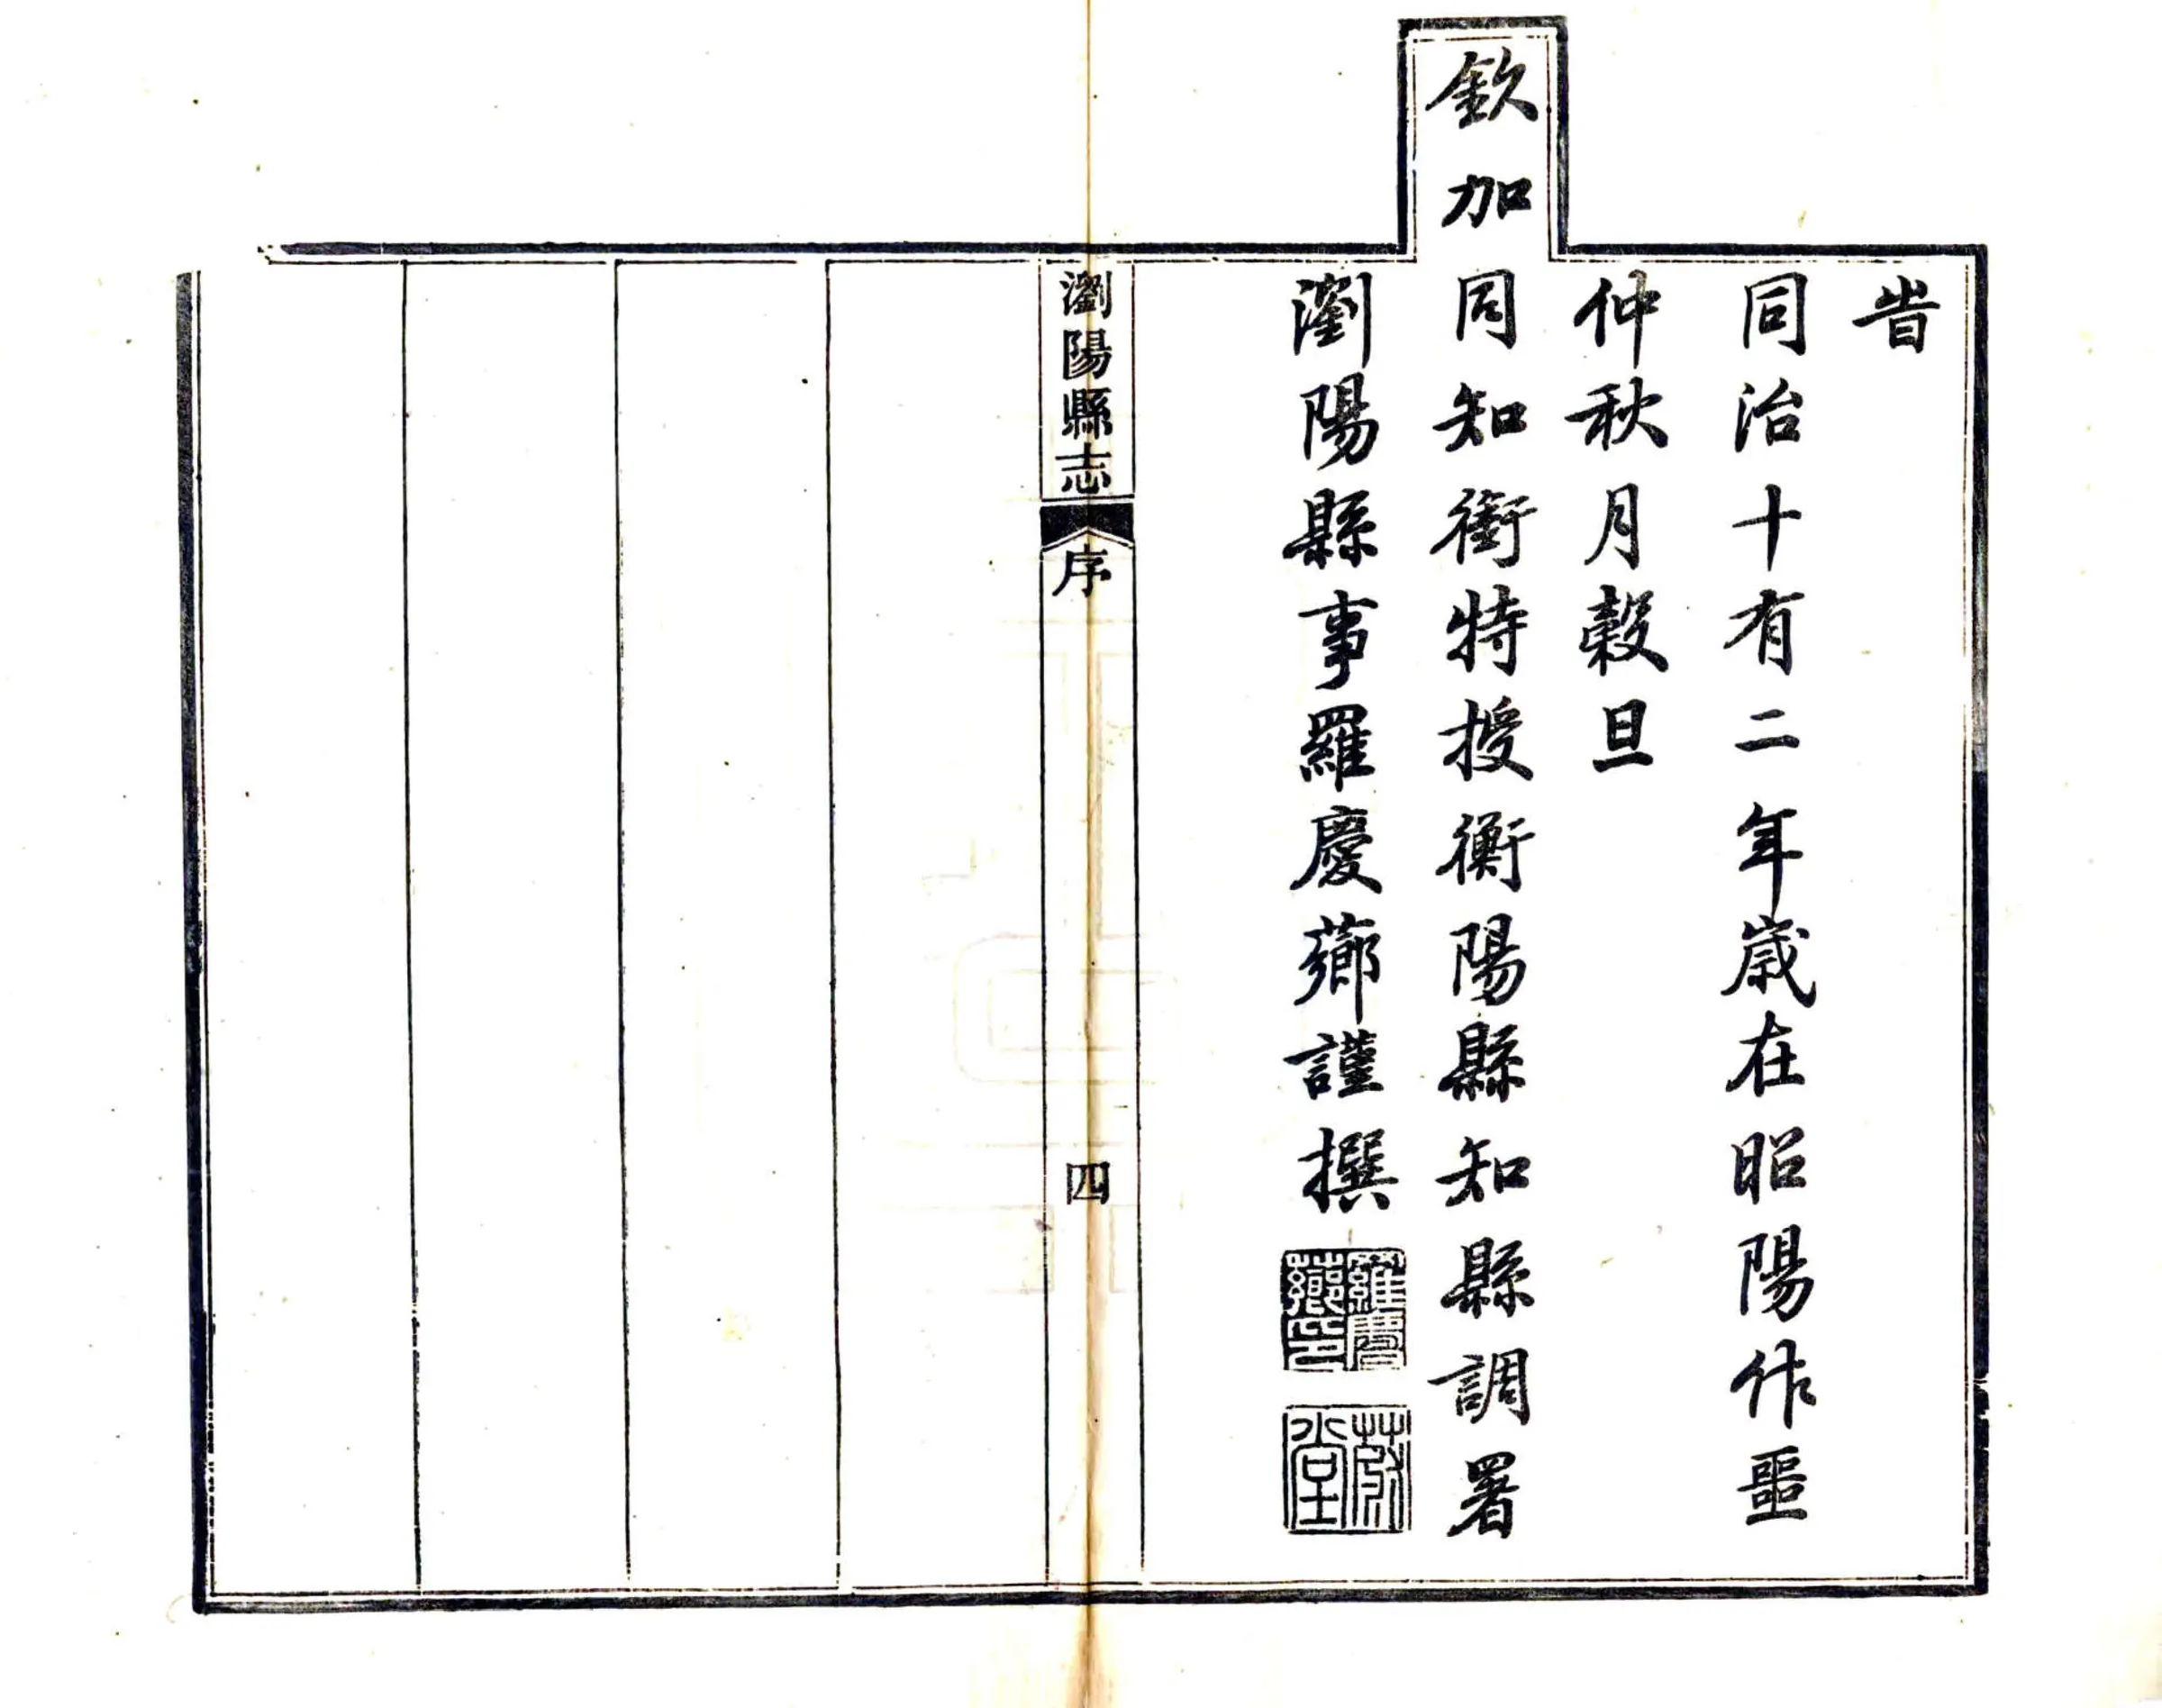 旹
同治十有二年歲在昭陽作噩
仲秋月穀旦
欽加同知銜特授衡陽縣知縣調署
瀏陽縣事羅慶薌謹撰
羅慶
薌印
堂
瀏陽縣志
序
四